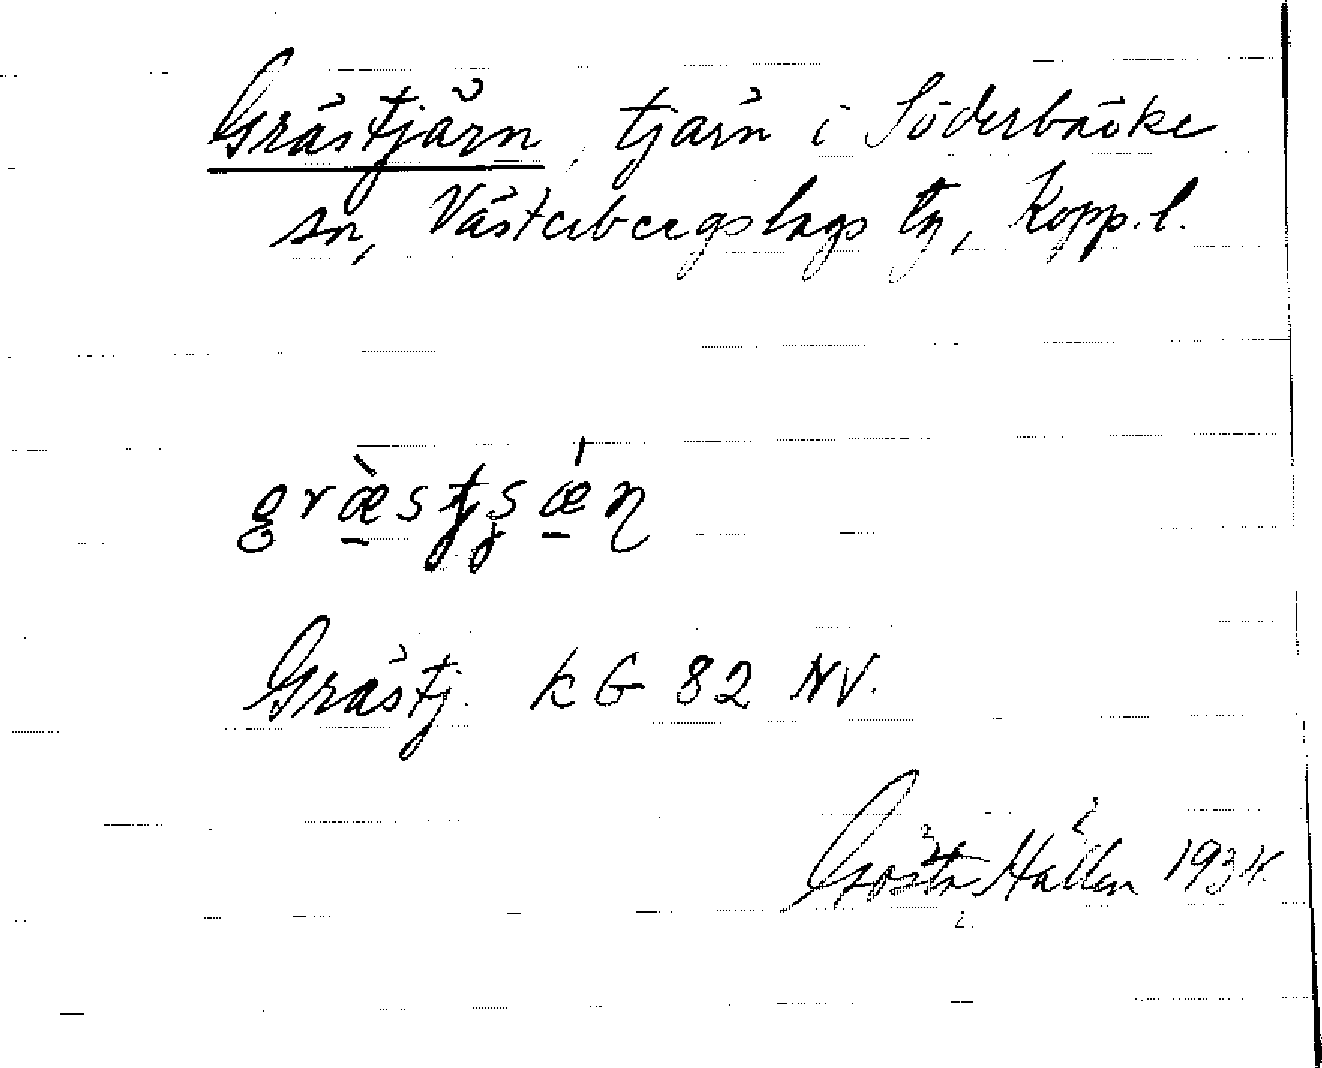 Grästjärn, tjärn i Söderbärke
sn, Västerbergslags tg, Kopp. l.
Grästj. k G 82 NV.
Gösta Hallen 1934.